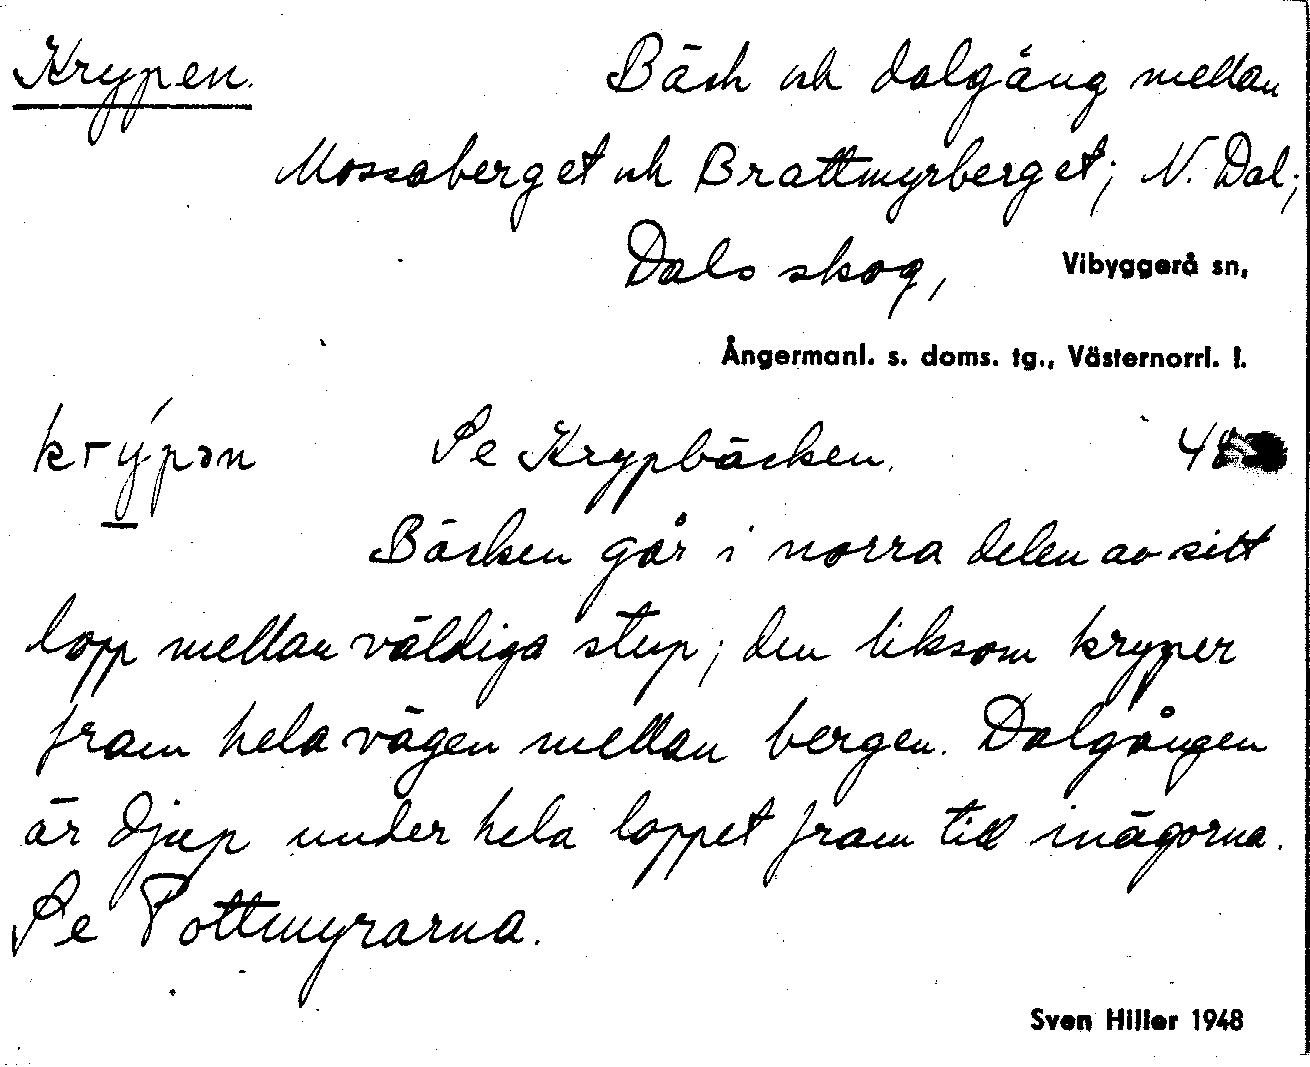 Krypen. Bäck och dalgång mellan
Mossaberget och Brattmyrberget; N. Dal;
Dals skog, Vibyggerå sn,
Ångermanl. s. doms. tg., Västernorrl. l.
krýpən Se Krypbäcken. 48
Bäcken går i norra delen av sitt
lopp mellan väldiga stup; den liksom kryper
fram hela vägen mellan bergen. Dalgången
är djup under hela loppet fram till inägorna.
Se Pottmyrarna.
Sven Hiller 1948